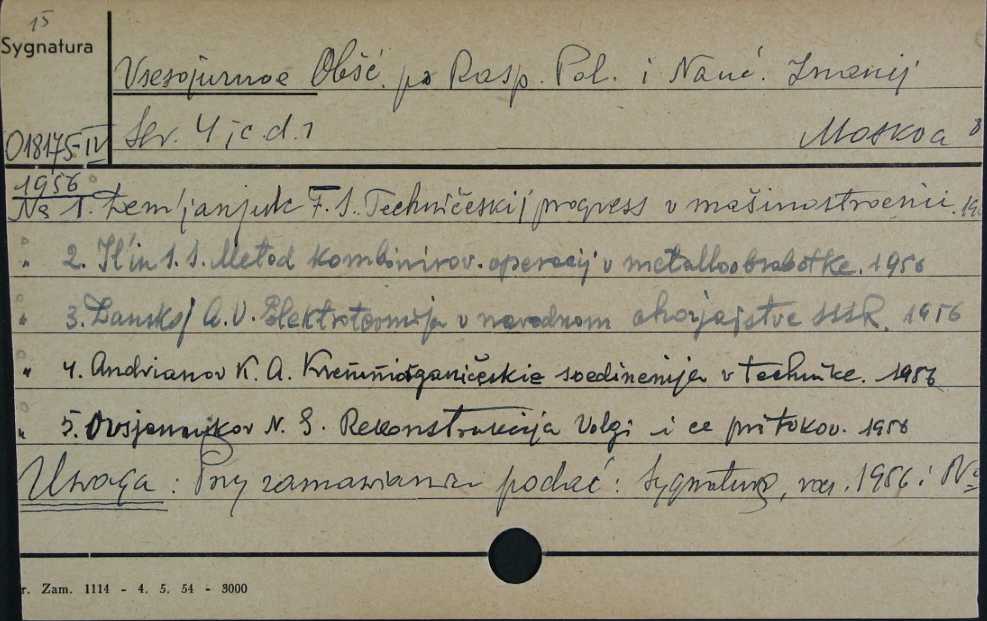 15
Sygnatura
Vsesojuznoe Obšč. po Rasp. Pol. i Nauč. Znanij
Ser. 4 i c. d. 1
Moskva 8
O18175-IV
1956
No 1. Dem'janjuk F. S. Techničeskij progress v mašinostroenii. 19
" 2. Il'in S. S. Metod kombinirov. operacij v metalloobrabotke. 1956
" 3. Danskoj A. V. Elektrotermija v narodnom chozjajstve SSSR. 1956
" 4. Andrianov K. A. Kremnijorganičeskie soedinenija v technike. 1956
" 5. Ovsjannikov N. G. Rekonstrukcija Volgi i ee pritokov. 1956
Uwaga: Przy zamawianiu podać: Sygnaturę, rok. 1956 i No
r. Zam. 1114 - 4. 5. 54 - 3000